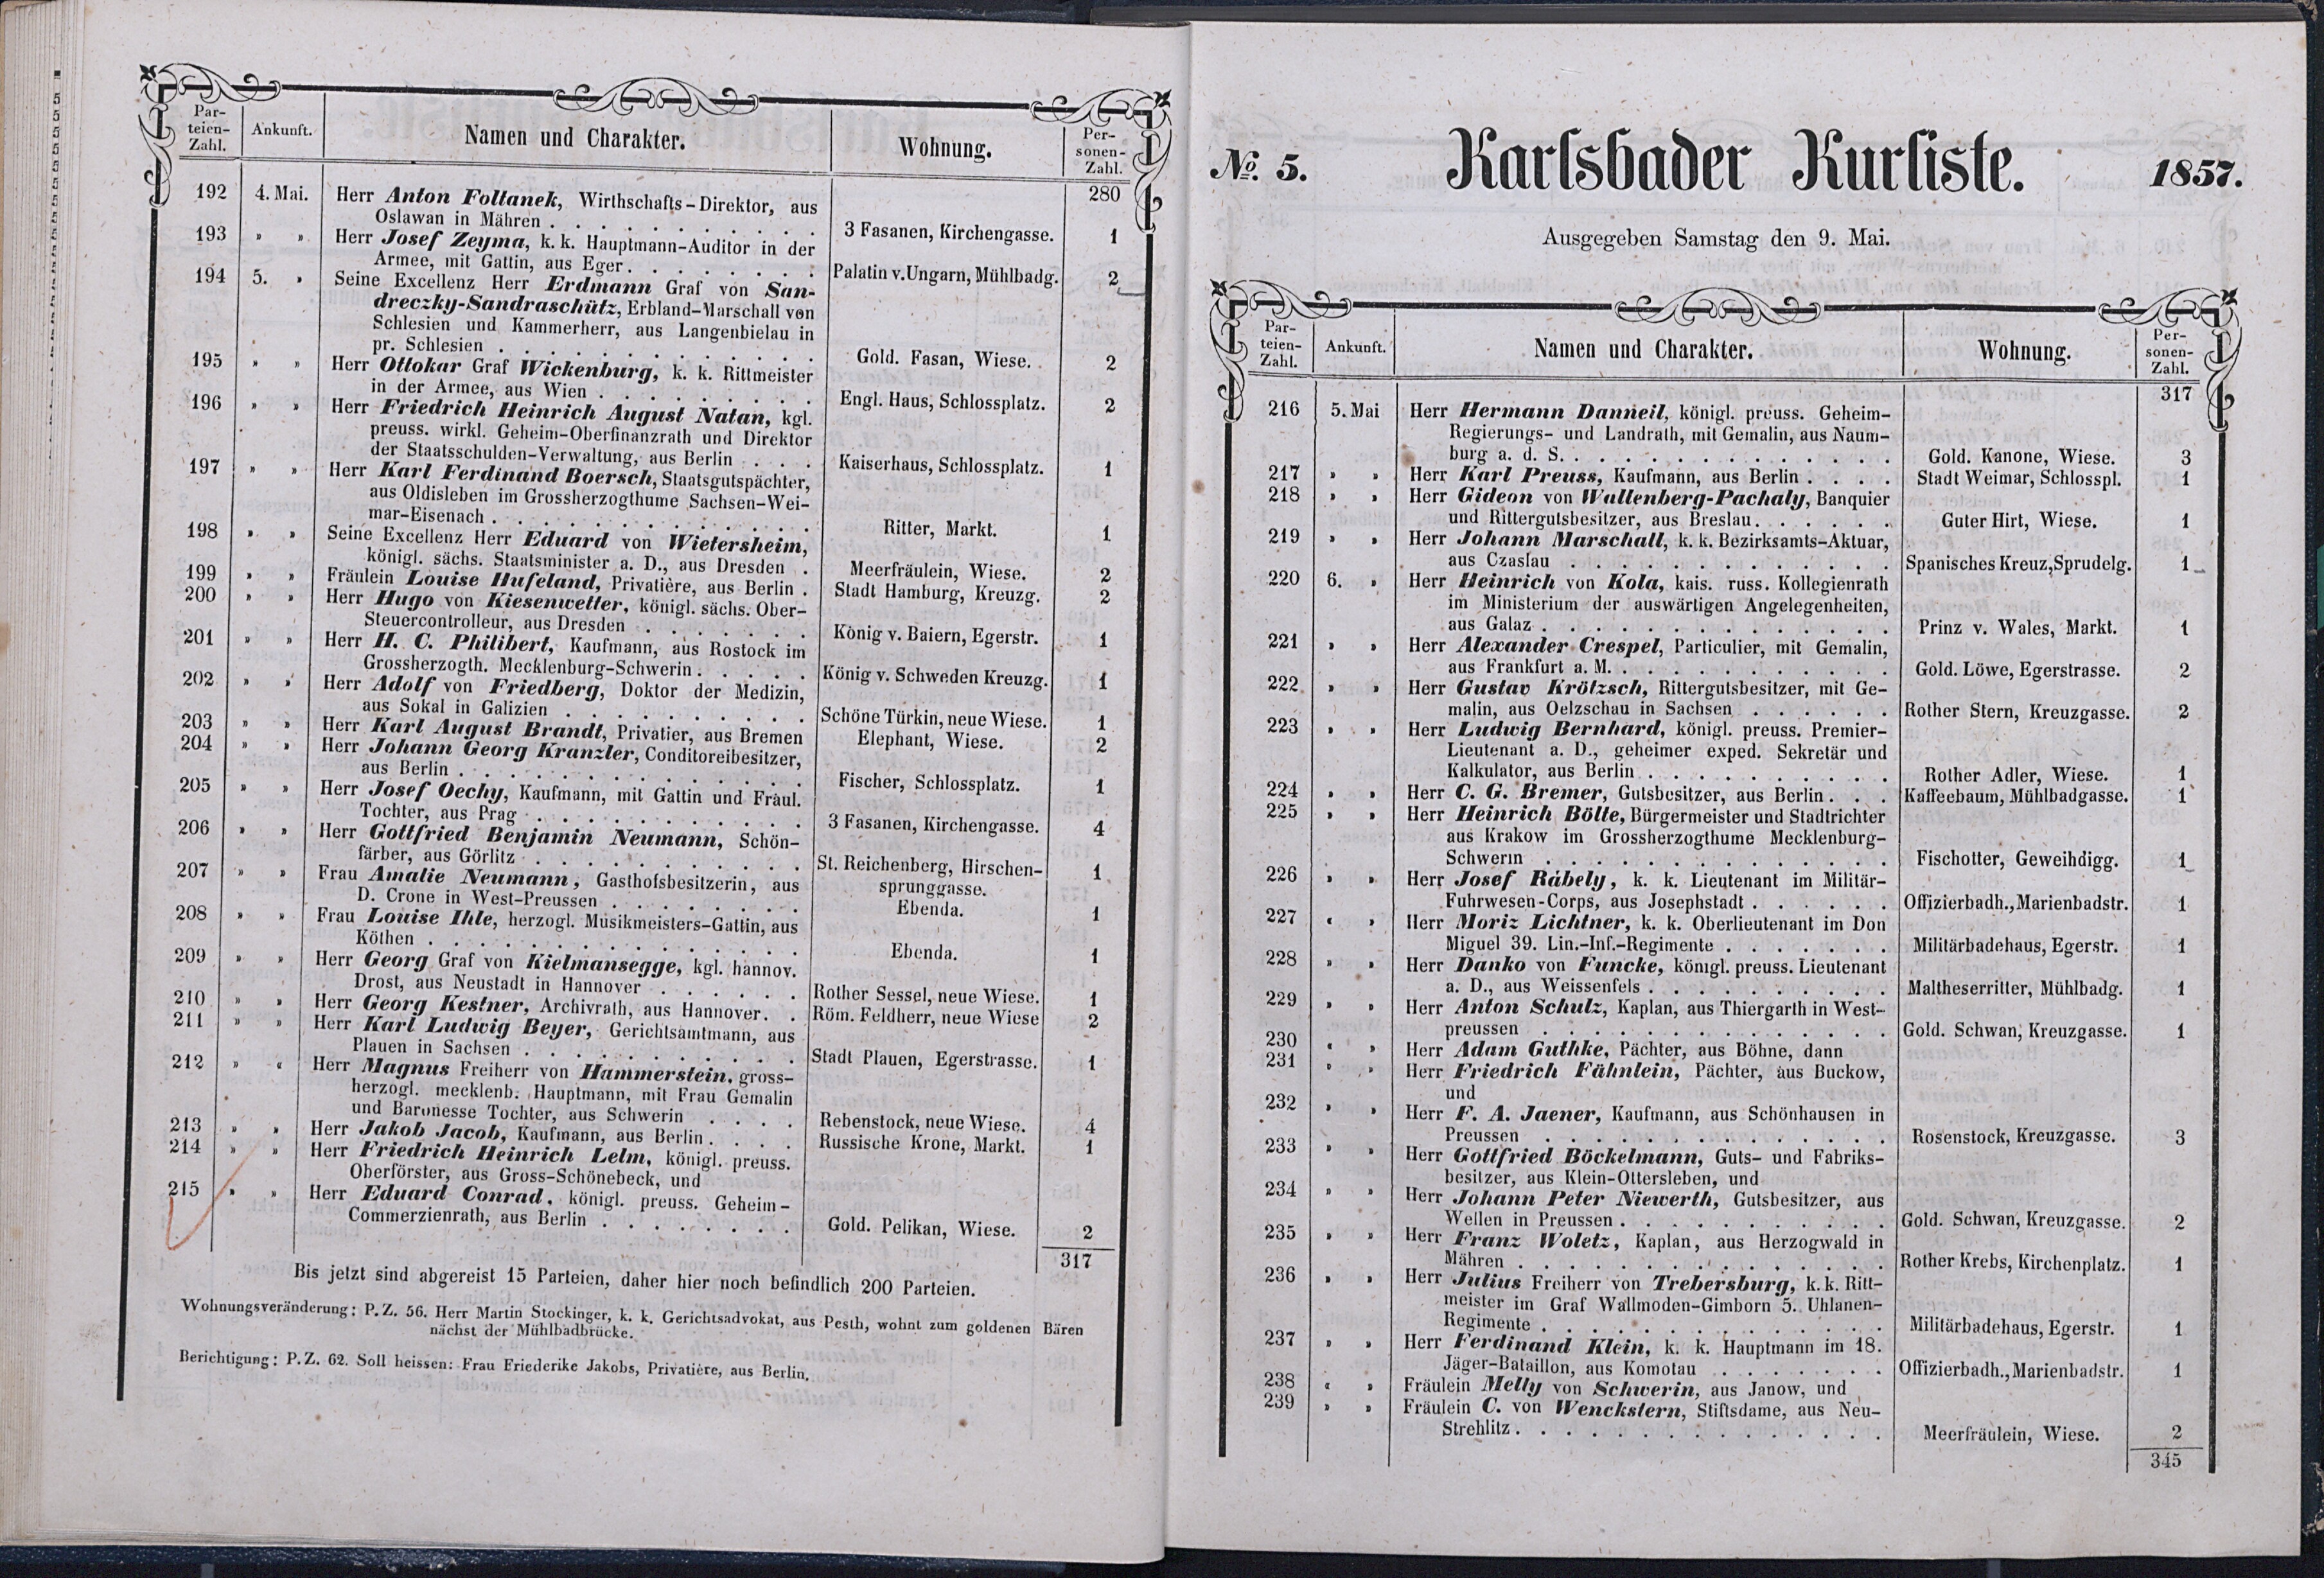 Par-
teien-
Zahl.
Ankunft.
Namen und Charakter.
Wohnung.
Per-
sonen-
Zahl.
280
192 4. Mai. Herr Anton Foltanek, Wirthschafts-Direktor, aus
Oslawan in Mähren . . . 3 Fasanen, Kirchengasse. 1
193 » » Herr Josef Zeyma, k. k. Hauptmann-Auditor in der
Armee, mit Gattin, aus Eger . . . Palatin v. Ungarn, Mühlbadg. 2
194 5. » Seine Excellenz Herr Erdmann Graf von San-
dreczky-Sandraschütz, Erbland-Marschall von
Schlesien und Kammerherr, aus Langenbielau in
pr. Schlesien . . . Gold. Fasan, Wiese. 2
195 » » Herr Ottokar Graf Wickenburg, k. k. Rittmeister
in der Armee, aus Wien . . . Engl. Haus, Schlossplatz. 2
196 » » Herr Friedrich Heinrich August Natan, kgl.
preuss. wirkl. Geheim-Oberfinanzrath und Direktor
der Staatsschulden-Verwaltung, aus Berlin . . . Kaiserhaus, Schlossplatz. 1
197 » » Herr Karl Ferdinand Boersch, Staatsgutspächter,
aus Oldisleben im Grossherzogthume Sachsen-Wei-
mar-Eisenach . . . Ritter, Markt. 1
198 » » Seine Excellenz Herr Eduard von Wietersheim,
königl. sächs. Staatsminister a. D., aus Dresden . Meerfräulein, Wiese. 2
199 » » Fräulein Louise Hufeland, Privatière, aus Berlin . Stadt Hamburg, Kreuzg. 2
200 » » Herr Hugo von Kiesenwetter, königl. sächs. Ober-
Steuercontrolleur, aus Dresden . . . König v. Baiern, Egerstr. 1
201 » » Herr H. C. Philibert, Kaufmann, aus Rostock im
Grossherzogth. Mecklenburg-Schwerin . . . König v. Schweden Kreuzg. 1
202 » » Herr Adolf von Friedberg, Doktor der Medizin,
aus Sokal in Galizien . . . Schöne Türkin, neue Wiese. 1
203 » » Herr Karl August Brandt, Privatier, aus Bremen Elephant, Wiese. 2
204 » » Herr Johann Georg Kranzler, Conditoreibesitzer,
aus Berlin . . . Fischer, Schlossplatz. 1
205 » » Herr Josef Oechy, Kaufmann, mit Gattin und Fräul.
Tochter, aus Prag . . . 3 Fasanen, Kirchengasse. 4
206 » » Herr Gottfried Benjamin Neumann, Schön-
färber, aus Görlitz . . . St. Reichenberg, Hirschen-
sprunggasse. 1
207 » » Frau Amalie Neumann, Gasthofsbesitzerin, aus
D. Crone in West-Preussen . . . Ebenda. 1
208 » » Frau Louise Ihle, herzogl. Musikmeisters-Gattin, aus
Köthen . . . Ebenda. 1
209 » » Herr Georg Graf von Kielmansegge, kgl. hannov.
Drost, aus Neustadt in Hannover . . . Rother Sessel, neue Wiese. 1
210 » » Herr Georg Kestner, Archivrath, aus Hannover. . Röm. Feldherr, neue Wiese 2
211 » » Herr Karl Ludwig Beyer, Gerichtsamtmann, aus
Plauen in Sachsen . . . Stadt Plauen, Egerstrasse. 1
212 » « Herr Magnus Freiherr von Hammerstein, gross-
herzogl. mecklenb. Hauptmann, mit Frau Gemalin
und Baronesse Tochter, aus Schwerin . . . . Rebenstock, neue Wiese. 4
213 » » Herr Jakob Jacob, Kaufmann, aus Berlin . . . . Russische Krone, Markt. 1
214 » » Herr Friedrich Heinrich Lelm, königl. preuss.
Oberförster, aus Gross-Schönebeck, und
215 » » Herr Eduard Conrad, königl. preuss. Geheim-
Commerzienrath, aus Berlin . . . Gold. Pelikan, Wiese. 2
317
Bis jetzt sind abgereist 15 Parteien, daher hier noch befindlich 200 Parteien.
Wohnungsveränderung: P. Z. 56. Herr Martin Stockinger, k. k. Gerichtsadvokat, aus Pesth, wohnt zum goldenen Bären
nächst der Mühlbadbrücke.
Berichtigung: P. Z. 62. Soll heissen: Frau Friederike Jakobs, Privatière, aus Berlin.
No. 5. Karlsbader Kurliste. 1857.
Ausgegeben Samstag den 9. Mai.
Par-
teien-
Zahl.
Ankunft.
Namen und Charakter.
Wohnung.
Per-
sonen-
Zahl.
317
216 5. Mai Herr Hermann Danneil, königl. preuss. Geheim-
Regierungs- und Landrath, mit Gemalin, aus Naum-
burg a. d. S. . . . Gold. Kanone, Wiese. 3
217 » » Herr Karl Preuss, Kaufmann, aus Berlin . . . . Stadt Weimar, Schlosspl. 1
218 » » Herr Gideon von Wallenberg-Pachaly, Banquier
und Rittergutsbesitzer, aus Breslau . . . Guter Hirt, Wiese. 1
219 » » Herr Johann Marschall, k. k. Bezirksamts-Aktuar,
aus Czaslau . . . Spanisches Kreuz, Sprudelg. 1
220 6. » Herr Heinrich von Kola, kais. russ. Kollegienrath
im Ministerium der auswärtigen Angelegenheiten,
aus Galaz . . . Prinz v. Wales, Markt. 1
221 » » Herr Alexander Crespel, Particulier, mit Gemalin,
aus Frankfurt a. M. . . . Gold. Löwe, Egerstrasse. 2
222 » » Herr Gustav Krötzsch, Rittergutsbesitzer, mit Ge-
malin, aus Oelzschau in Sachsen . . . Rother Stern, Kreuzgasse. 2
223 » » Herr Ludwig Bernhard, königl. preuss. Premier-
Lieutenant a. D., geheimer exped. Sekretär und
Kalkulator, aus Berlin . . . Rother Adler, Wiese. 1
224 » » Herr C. G. Bremer, Gutsbesitzer, aus Berlin . . . Kaffeebaum, Mühlbadgasse. 1
225 » » Herr Heinrich Bölte, Bürgermeister und Stadtrichter
aus Krakow im Grossherzogthume Mecklenburg-
Schwerin . . . Fischotter, Geweihdigg. 1
226 » » Herr Josef Rábely, k. k. Lieutenant im Militär-
Fuhrwesen-Corps, aus Josephstadt . . . Offizierbadh., Marienbadstr. 1
227 « » Herr Moriz Lichtner, k. k. Oberlieutenant im Don
Miguel 39. Lin.-Inf.-Regimente . . . Militärbadehaus, Egerstr. 1
228 » » Herr Danko von Funcke, königl. preuss. Lieutenant
a. D., aus Weissenfels . . . Maltheserritter, Mühlbadg. 1
229 » » Herr Anton Schulz, Kaplan, aus Thiergarth in West-
preussen . . . Gold. Schwan, Kreuzgasse. 1
230 « » Herr Adam Guthke, Pächter, aus Böhne, dann
231 » » Herr Friedrich Fähnlein, Pächter, aus Buckow,
und
232 » » Herr F. A. Jaener, Kaufmann, aus Schönhausen in
Preussen . . . Rosenstock, Kreuzgasse. 3
233 » » Herr Gottfried Böckelmann, Guts- und Fabriks-
besitzer, aus Klein-Ottersleben, und
234 » » Herr Johann Peter Niewerth, Gutsbesitzer, aus
Wellen in Preussen . . . Gold. Schwan, Kreuzgasse. 2
235 » » Herr Franz Woletz, Kaplan, aus Herzogwald in
Mähren . . . Rother Krebs, Kirchenplatz. 1
236 » » Herr Julius Freiherr von Trebersburg, k. k. Ritt-
meister im Graf Wallmoden-Gimborn 5. Uhlanen-
Regimente . . . Militärbadehaus, Egerstr. 1
237 » » Herr Ferdinand Klein, k. k. Hauptmann im 18.
Jäger-Bataillon, aus Komotau . . . Offizierbadh., Marienbadstr. 1
238 « » Fräulein Melly von Schwerin, aus Janow, und
239 » » Fräulein C. von Wenckstern, Stiftsdame, aus Neu-
Strehlitz . . . Meerfräulein, Wiese. 2
345